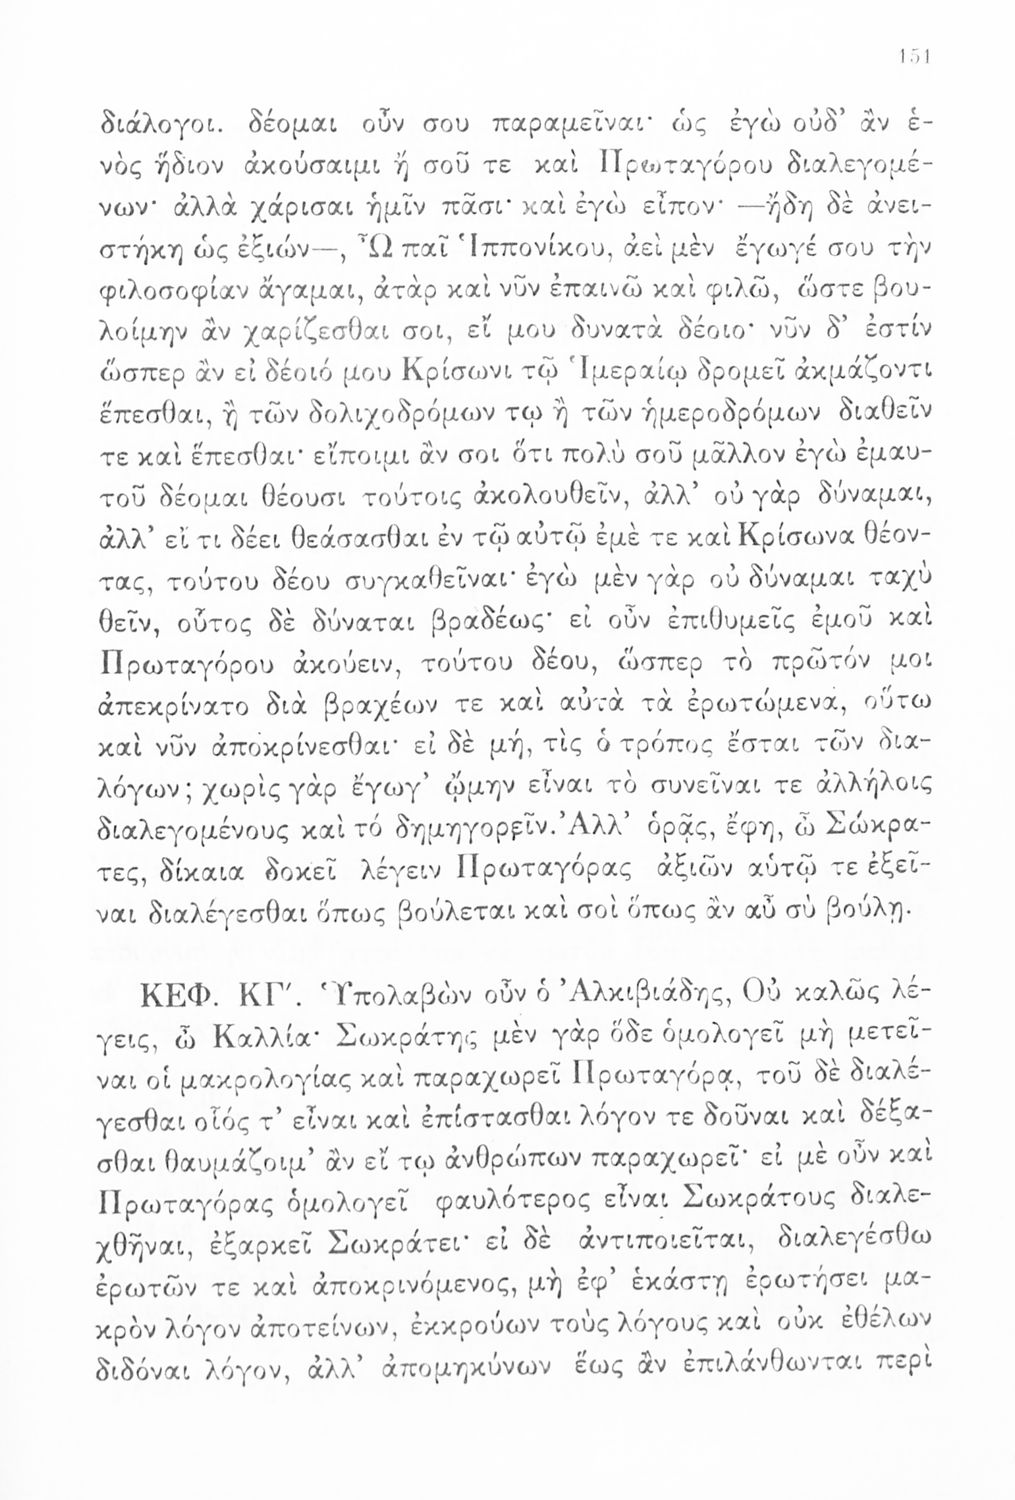 151
διάλογοι. δέομαι οὖν σου παραμεῖναι· ὡς ἐγὼ οὐδ’ ἂν ἑ-
νὸς ἥδιον ἀκούσαιμι ἢ σοῦ τε καὶ Πρωταγόρου διαλεγομέ-
νων· ἀλλὰ χάρισαι ἡμῖν πᾶσι· καὶ ἐγὼ εἶπον· —ἤδη δὲ ἀνει-
στήκη ὡς ἐξιών—, Ὦ παῖ Ἱππονίκου, ἀεὶ μὲν ἔγωγέ σου τὴν
φιλοσοφίαν ἄγαμαι, ἀτὰρ καὶ νῦν ἐπαινῶ καὶ φιλῶ, ὥστε βου-
λοίμην ἂν χαρίζεσθαι σοι, εἴ μου δυνατὰ δέοιο· νῦν δ’ ἐστίν
ὥσπερ ἂν εἰ δέοιό μου Κρίσωνι τῷ Ἱμεραίῳ δρομεῖ ἀκμάζοντι
ἕπεσθαι, ἢ τῶν δολιχοδρόμων τῳ ἢ τῶν ἡμεροδρόμων διαθεῖν
τε καὶ ἕπεσθαι· εἴποιμι ἂν σοι ὅτι πολὺ σοῦ μᾶλλον ἐγὼ ἐμαυ-
τοῦ δέομαι θέουσι τούτοις ἀκολουθεῖν, ἀλλ’ οὐ γὰρ δύναμαι,
ἀλλ’ εἴ τι δέει θεάσασθαι ἐν τῷ αὐτῷ ἐμὲ τε καὶ Κρίσωνα θέον-
τας, τούτου δέου συγκαθεῖναι· ἐγὼ μὲν γὰρ οὐ δύναμαι ταχὺ
θεῖν, οὗτος δὲ δύναται βραδέως· εἰ οὖν ἐπιθυμεῖς ἐμοῦ καὶ
Πρωταγόρου ἀκούειν, τούτου δέου, ὥσπερ τὸ πρῶτόν μοι
ἀπεκρίνατο διὰ βραχέων τε καὶ αὐτὰ τὰ ἐρωτώμενα, οὕτω
καὶ νῦν ἀποκρίνεσθαι· εἰ δὲ μή, τὶς ὁ τρόπος ἔσται τῶν δια-
λόγων; χωρὶς γὰρ ἔγωγ’ ᾤμην εἶναι τὸ συνεῖναι τε ἀλλήλοις
διαλεγομένους καὶ τό δημηγορεῖν. Ἀλλ’ ὁρᾷς, ἔφη, ὦ Σώκρα-
τες, δίκαια δοκεῖ λέγειν Πρωταγόρας ἀξιῶν αὑτῷ τε ἐξεῖ-
ναι διαλέγεσθαι ὅπως βούλεται καὶ σοὶ ὅπως ἂν αὖ σὺ βούλῃ.
ΚΕΦ. ΚΓ′. Ὑπολαβὼν οὖν ὁ Ἀλκιβιάδης, Οὐ καλῶς λέ-
γεις, ὦ Καλλία· Σωκράτης μὲν γὰρ ὅδε ὁμολογεῖ μὴ μετεῖ-
ναι οἱ μακρολογίας καὶ παραχωρεῖ Πρωταγόρᾳ, τοῦ δὲ διαλέ-
γεσθαι οἷός τ’ εἶναι καὶ ἐπίστασθαι λόγον τε δοῦναι καὶ δέξα-
σθαι θαυμάζοιμ’ ἂν εἴ τῳ ἀνθρώπων παραχωρεῖ· εἰ μὲ οὖν καὶ
Πρωταγόρας ὁμολογεῖ φαυλότερος εἶναι Σωκράτους διαλε-
χθῆναι, ἐξαρκεῖ Σωκράτει· εἰ δὲ ἀντιποιεῖται, διαλεγέσθω
ἐρωτῶν τε καὶ ἀποκρινόμενος, μὴ ἐφ’ ἑκάστῃ ἐρωτήσει μα-
κρὸν λόγον ἀποτείνων, ἐκκρούων τοὺς λόγους καὶ οὐκ ἐθέλων
διδόναι λόγον, ἀλλ’ ἀπομηκύνων ἕως ἂν ἐπιλάνθωνται περὶ